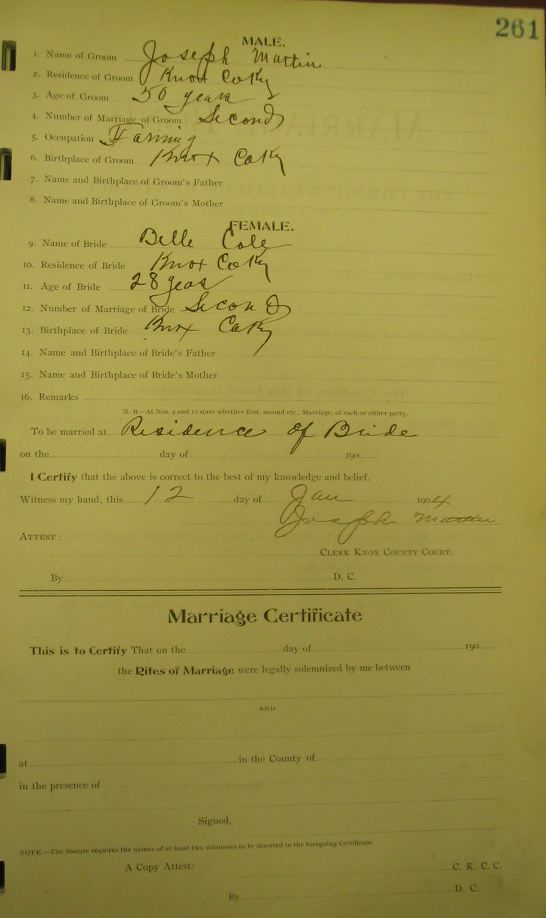 261
MALE.
1. Name of Groom Joseph Martin
2. Residence of Groom Knox Co Ky
3. Age of Groom 50 years
4. Number of Marriage of Groom Second
5. Occupation Farming
6. Birthplace of Groom Knox Co Ky
7. Name and Birthplace of Groom's Father
8. Name and Birthplace of Groom's Mother
FEMALE.
9. Name of Bride Belle Cole
10. Residence of Bride Knox Co Ky
11. Age of Bride 28 years
12. Number of Marriage of Bride Second
13. Birthplace of Bride Knox Co Ky
14. Name and Birthplace of Bride's Father
15. Name and Birthplace of Bride's Mother
16. Remarks
N. B.—At Nos. 4 and 12 state whether first, second etc., Marriage, of each or either party.
To be married at Residence of Bride
on the day of 190
I Certify that the above is correct to the best of my knowledge and belief.
Witness my hand, this 12 day of Jan 1904
Joseph Martin
ATTEST:
CLERK KNOX COUNTY COURT.
By D. C.
Marriage Certificate
This is to Certify That on the day of 190
the Rites of Marriage were legally solemnized by me between
AND
at in the County of
in the presence of
Signed,
NOTE.—The Statute requires the names of at least two witnesses to be inserted in the foregoing Certificate.
A Copy Attest: C. K. C. C.
By D. C.